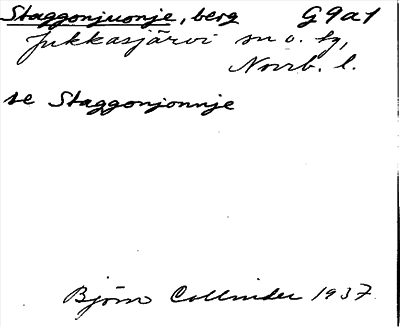 Staggonjuonje, berg G9a1
Jukkasjärvi sn o. tg,
Norrb. l.
se Staggonjonnje
Björn Collinder 1937